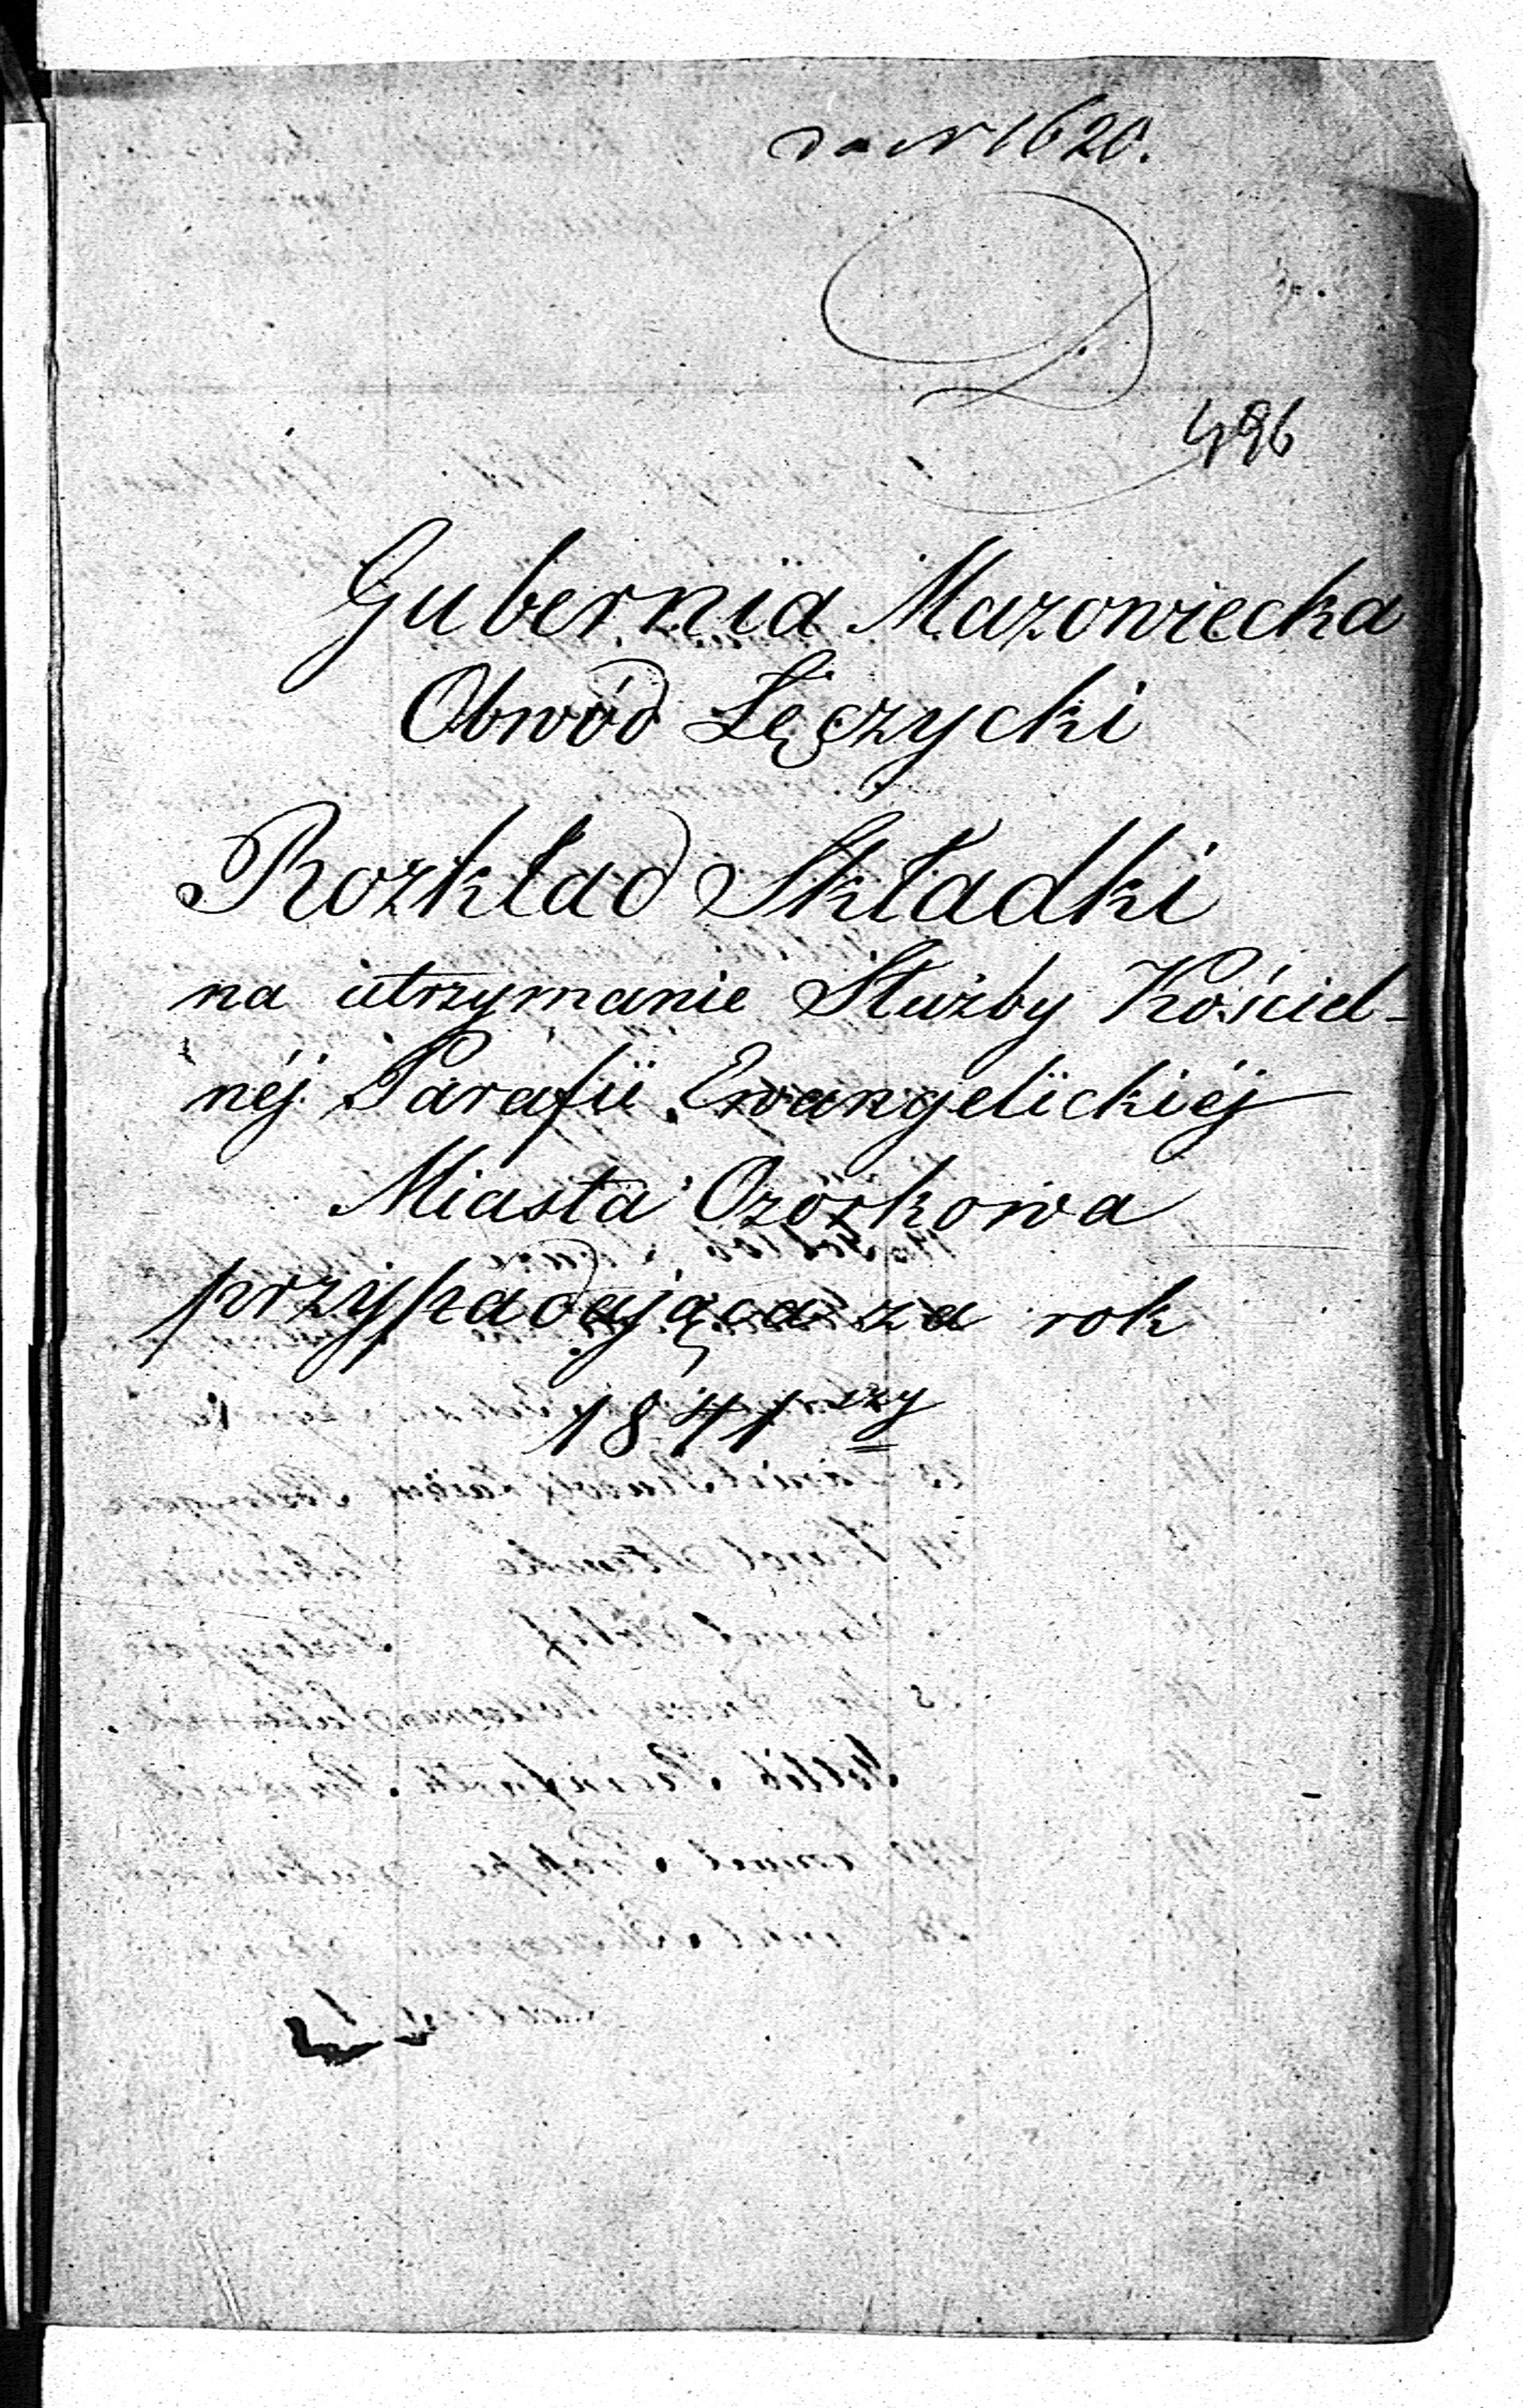 do N 1620.
496
Gubernia Mazowiecka
Obwód Łęczycki
Rozkład Składki
na utrzymanie Służby Kościel-
néj Parafii Ewangelickiéj
Miasta Ozorkowa
przypadająca za rok
1841szy